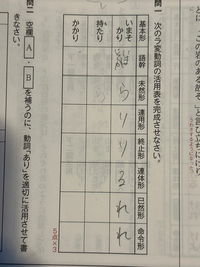 問一 次のラ変動詞の活用表を完成させなさい。
基本形 語幹 未然形 連用形 終止形 連体形 已然形 命令形
いまそかり ら り り る れ れ
持たり
かかり
問二 空欄A・Bを補うのに、動詞「あり」を適切に活用させて書
きなさい。